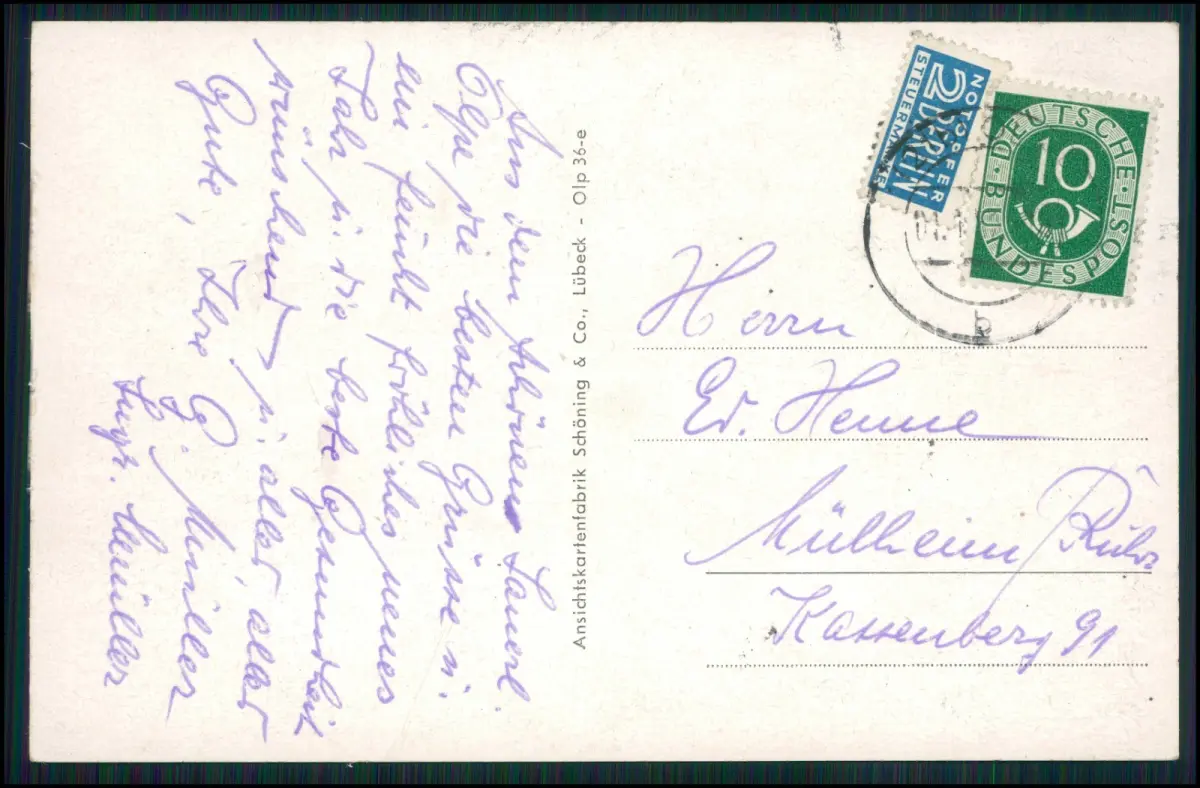 Aus dem schönen Sauerl.
Olpe die besten Grüsse u.
ein feucht fröhliches neues
Jahr u. die beste Gesundheit
wünschend u. alles, alles
Gute, Ihre G. Müller
Müller
Ansichtskartenfabrik Schöning & Co., Lübeck - Olp 36-e
NOTOPFER
2 BERLIN
STEUERMARKE
DEUTSCHE BUNDESPOST
10
b
Herrn
Ed. Henne
Mülheim Ruhr
Kassenberg 91